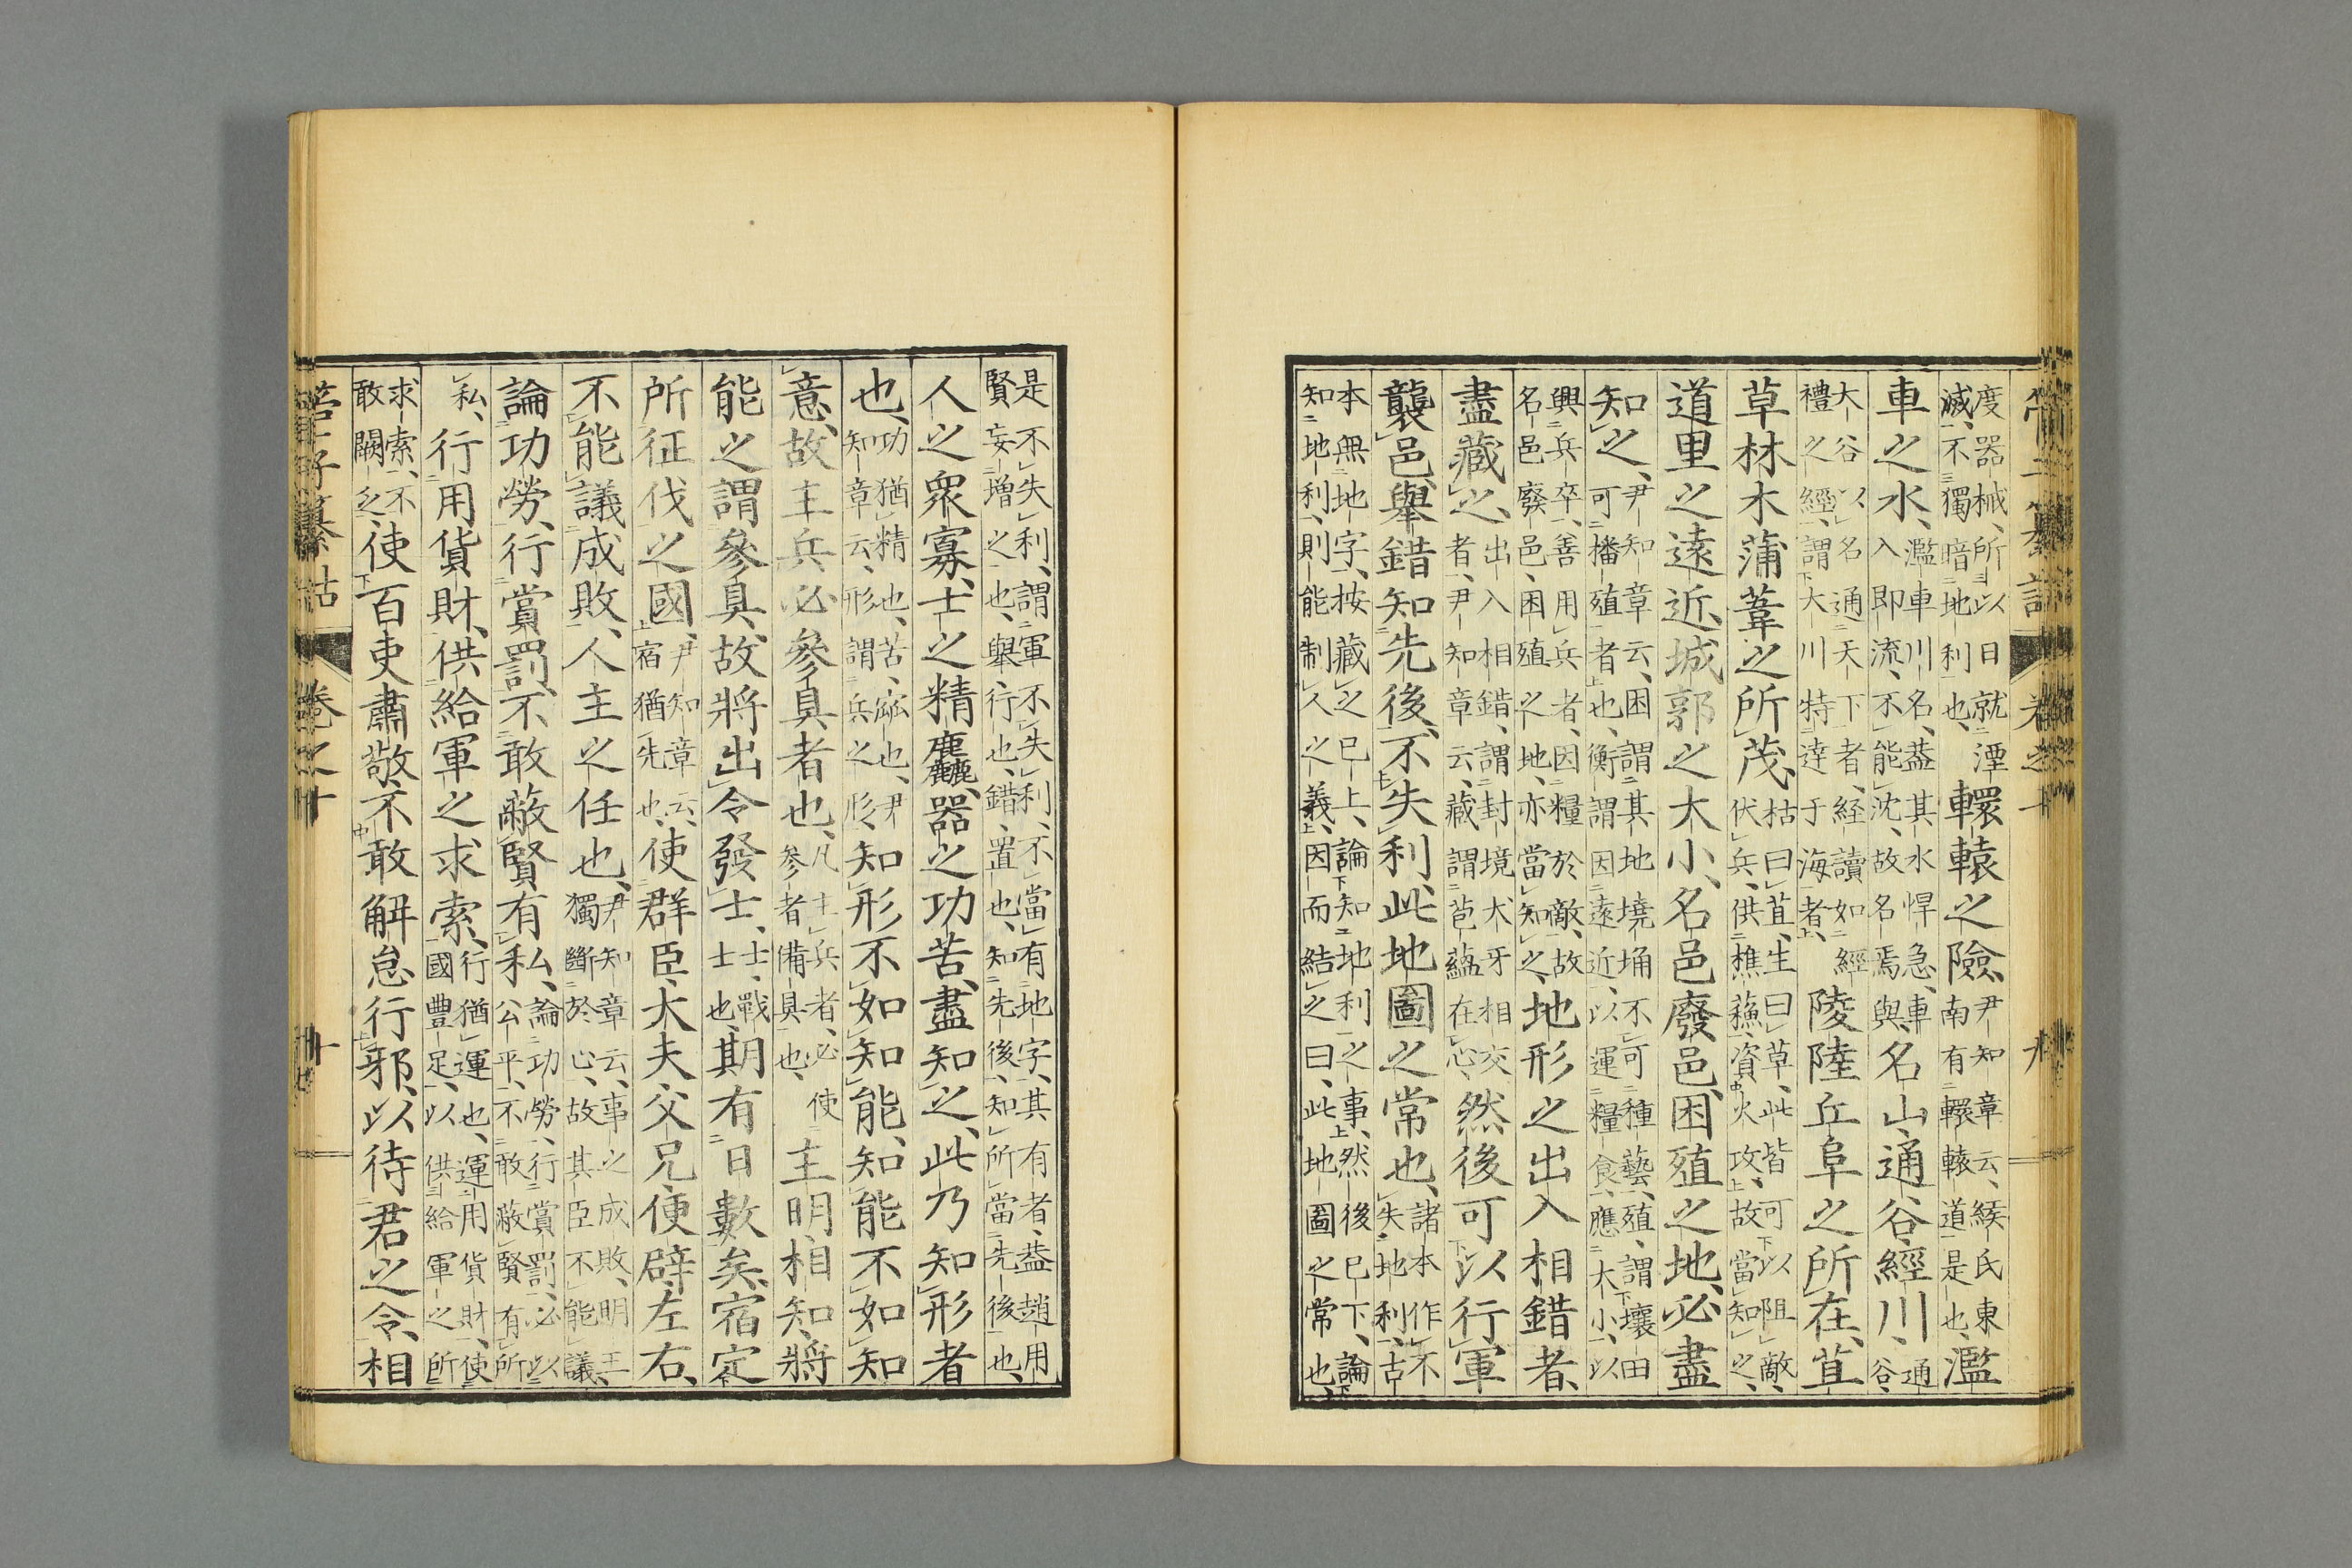 管子纂詁 卷之十 九
度器械、所以日就湮滅、不獨暗地利也、轘轅之險、尹知章云、緱氏東南有轘轅道是也、濫
車之水、濫車川名、蓋其水悍急、車入即流、不能沈、故名焉與、名山、通谷、經川、通谷、
大谷以名通天下者、経讀如經禮之經、謂大川特達于海者、陵陸丘阜之所在、苴
草林木蒲葦之所茂、枯曰苴、生曰草、此皆可以阻敵、伏兵、供樵蘓、資火攻、故當知之、
道里之遠近、城郭之大小、名邑廢邑、困殖之地、必盡
知之、尹知章云、困謂其地墝埆不可種藝、殖、謂壤田可播殖者也、衡謂因遠近、以運糧食、應大小、以
興兵卒、善用兵者、因糧於敵、故名邑廢邑、困殖之地、亦當知之、地形之出入相錯者、
盡藏之、出入相錯、謂封境犬牙相交者、尹知章云、藏謂苞蘊在心、然後可以行軍
襲邑、舉錯知先後、不失利、此地圖之常也、諸本作不失地利、古
本無地字、按藏之已上、論知地利之事、然後已下、論知地利、則能制人之義、因而結之曰、此地圖之常也、
是不失利、謂軍不失利、不當有地字、其有者、蓋趙用賢妄增之也、舉、行也、錯、置也、知先後、知所當先後也、
人之眾寡、士之精麤、器之功苦、盡知之、此乃知形者
也、功猶精也、苦、窳也、尹知章云、形謂兵之形、知形不如知能、知能不如知
意、故主兵必參具者也、凡主兵者、必使參者備具也、主明、相知、將
能之謂參具、故將出令發士、士、戰士也、期有日數矣、宿定
所征伐之國、尹知章云、宿猶先也、使群臣、大夫父兄、便辟左右、
不能議成敗、人主之任也、尹知章云、事之成敗、明主獨斷於心、故其臣不能議、
論功勞、行賞罰、不敢蔽賢有私、論功勞、行賞罰、必以公平、不敢蔽賢有所
私、行用貨財、供給軍之求索、行猶運也、運用貨財、使國豐足、以供給軍之所
求索、不敢闕乏、使百吏肅敬、不敢解怠行邪、以待君之令、相
管子纂詁 卷之十 十